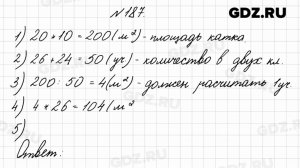 GDZ.RU
№187.
1) 20+10=200(м²)- площадь катка
2) 26+24=50(уч)- количество в двух кл.
3) 200:50=4(м²)- должен расчитать 1уч.
4) 4*26=104(м²
5)
Ответ:
GDZ.RU